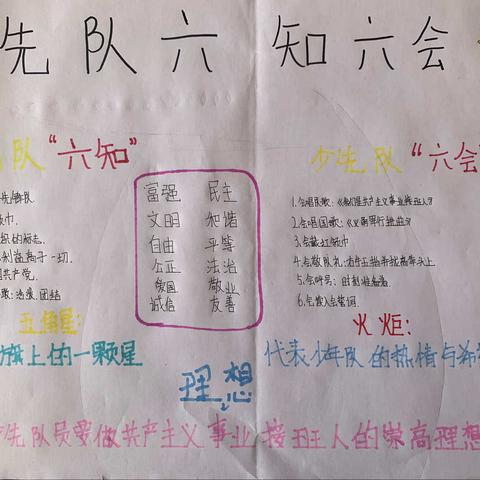 先队六知六会
队“六知”
少先队“六会”
富强 民主
文明 和谐
自由 平等
公正 法治
爱国 敬业
诚信 友善
巾.
的标志.
利益高于一切.
产党.
1.会唱队歌:《我们是共产主义事业接班人》
2.会唱国歌:《义勇军行进曲》
3.会戴红领巾
4.会敬队礼:右手五指并拢高举头上
5.会呼号:时刻准备着
6.会背入会誓词.
五角星:
火炬:
旗上的一颗星
代表少年队的热情与希
理想
先队员要做共产主义事业接班人的崇高理想